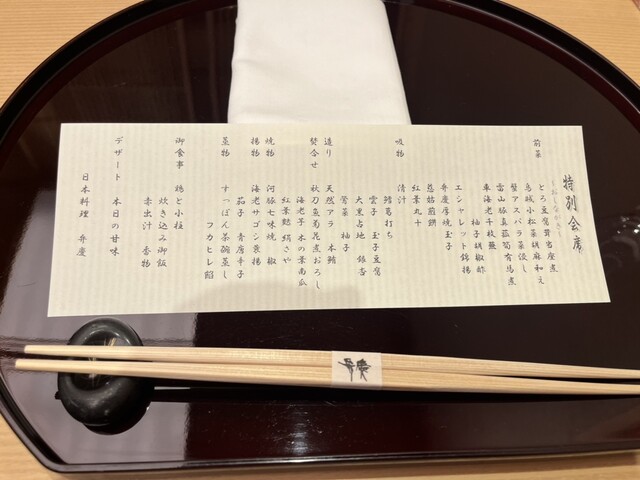 特別会席
前菜 とろ豆腐
小松菜胡麻和え
蟹アスパラ菜浸し
富山豚 有馬煮
車海老千枚蕪
柚子胡椒酢
エシャレット錦揚
弁慶厚焼玉子
慈姑煎餅
紅葉丸十
吸物 清汁
鱧葛打ち
雲子 玉子豆腐
大黒占地 銀杏
菊菜 柚子
造り 天然アラ 本鮪
焚合せ 秋刀魚菊花煮おろし
海老芋 木の葉南瓜
紅葉麩 絹さや
焼物 河豚七味焼 椒
揚物 海老サゴシ蓑揚
茄子 青唐辛子
蒸物 すっぽん茶碗蒸し
フカヒレ餡
御食事 鶏と小柱
炊き込み御飯
赤出汁 香物
デザート 本日の甘味
日本料理 弁慶
弁慶